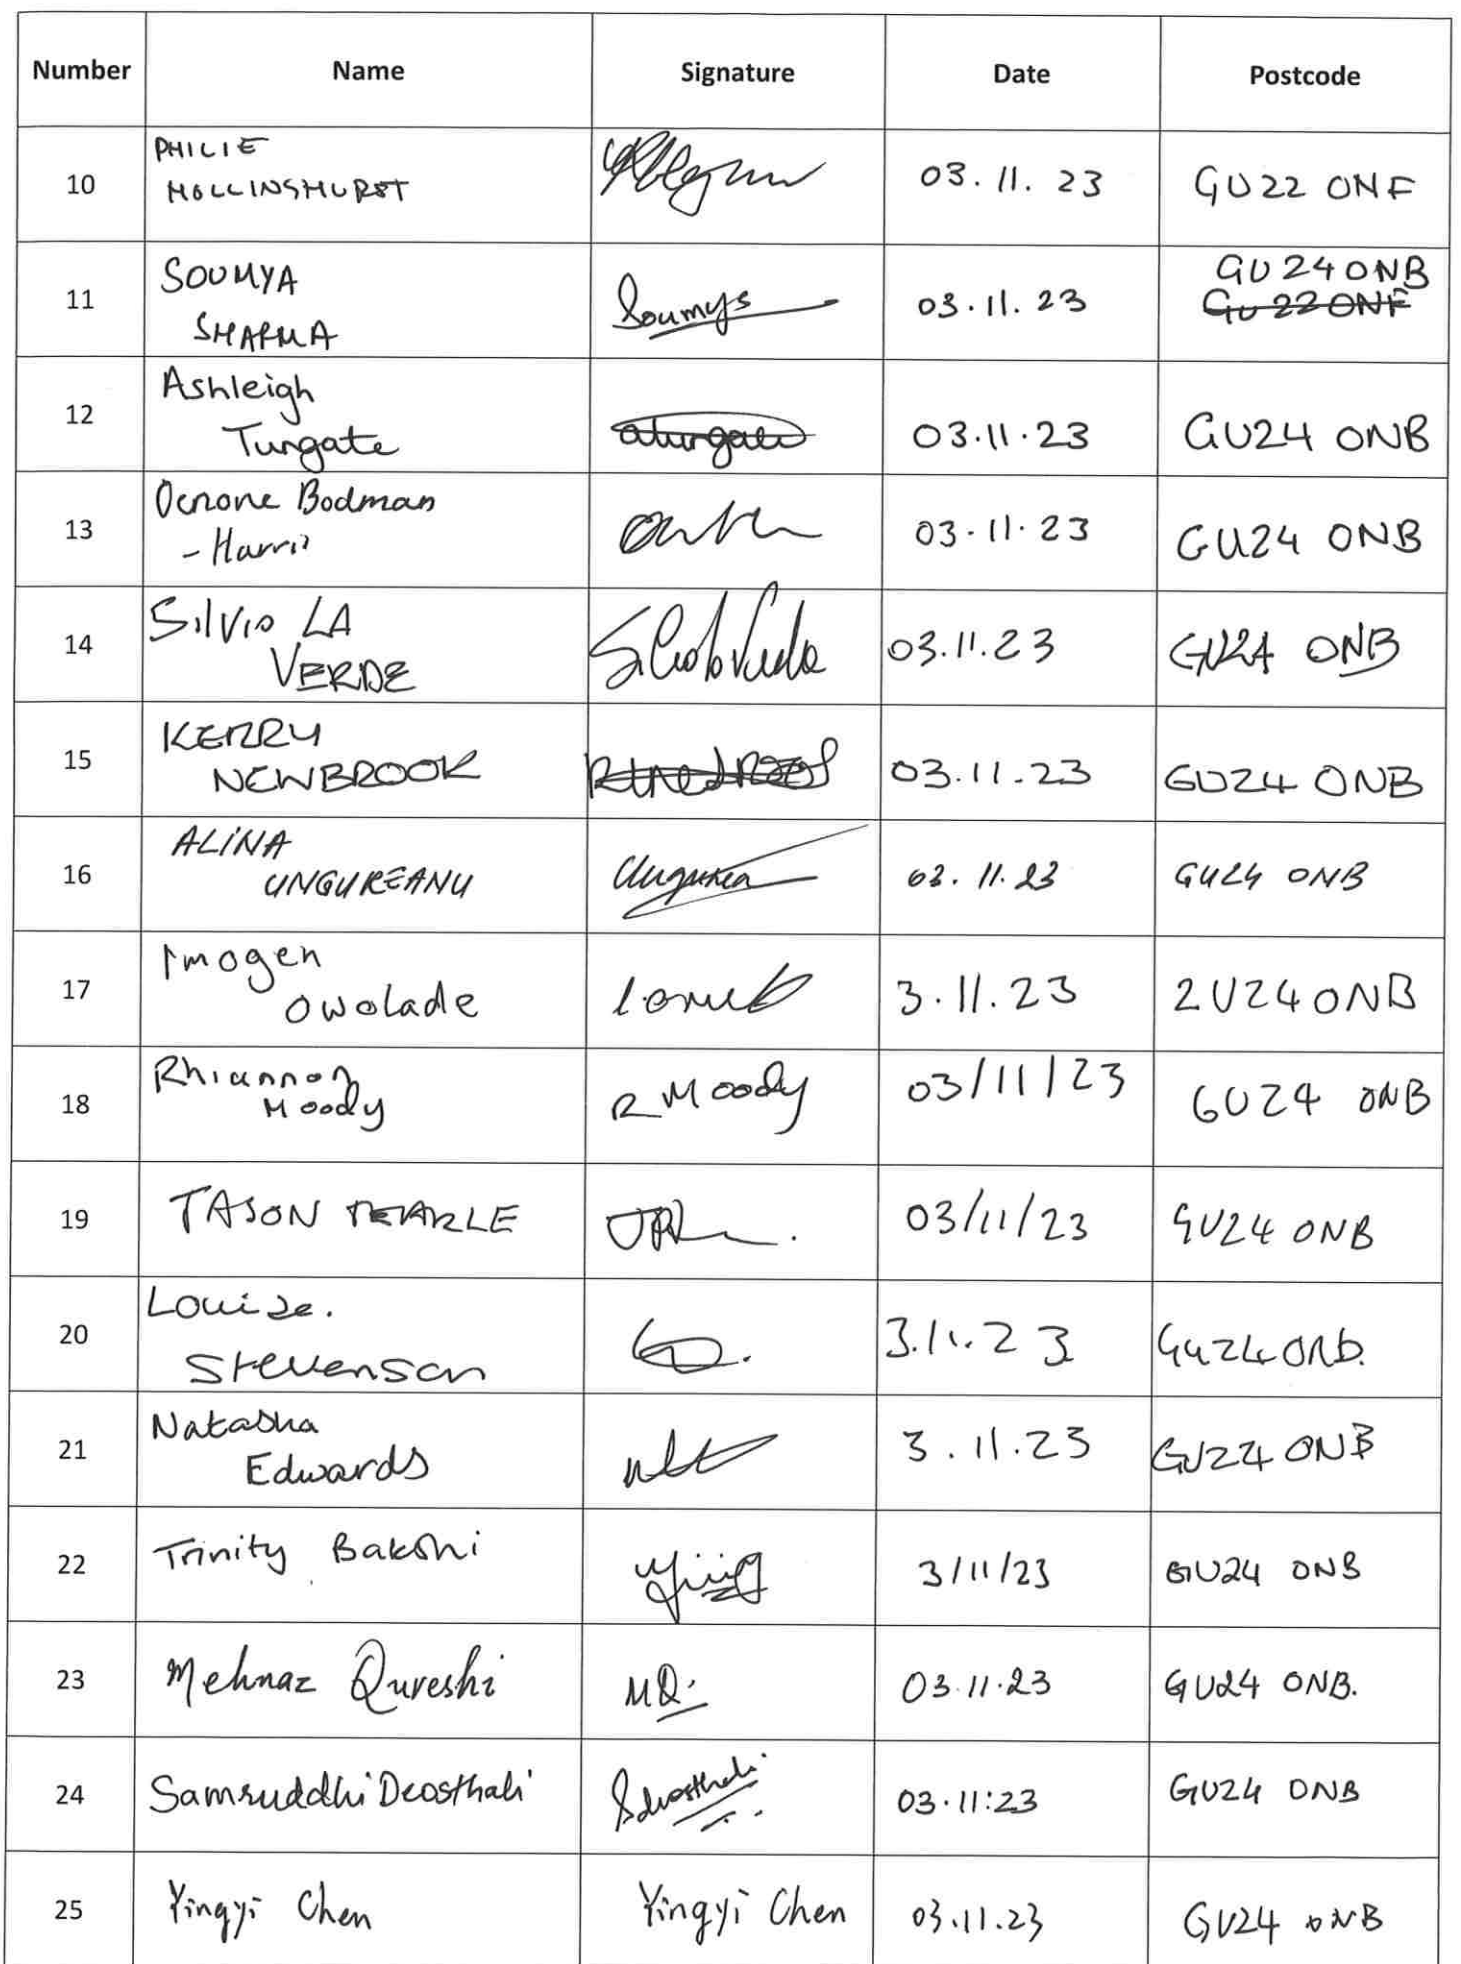 Number Name Signature Date Postcode
10 PHILIE HOLLINSHURST 03.11.23 GU22 0NF
11 SOUMYA SHARMA Soumya 03.11.23 GU24 0NB GU22 0NF
12 Ashleigh Turgate aturgate 03.11.23 GU24 0NB
13 Oenone Bodman - Harris 03.11.23 GU24 0NB
14 Silvio LA VERDE 03.11.23 GU24 0NB
15 KERRY NEWBROOK 03.11.23 GU24 0NB
16 ALINA UNGUREANU 03.11.23 GU24 0NB
17 Imogen Owolade 3.11.23 2U24 0NB
18 Rhiannon Moody R Moody 03/11/23 GU24 0NB
19 JASON 03/11/23 GU24 0NB
20 Louise. Stevenson 3.11.23 GU24 0NB.
21 Natasha Edwards 3.11.23 GU24 0NB
22 Trinity Bakshi 3/11/23 GU24 0NB
23 Mehnaz Qureshi MQ. 03.11.23 GU24 0NB.
24 Samruddhi Deosthali SDeosthali 03.11:23 GU24 0NB
25 Yingyi Chen Yingyi Chen 03.11.23 GU24 0NB